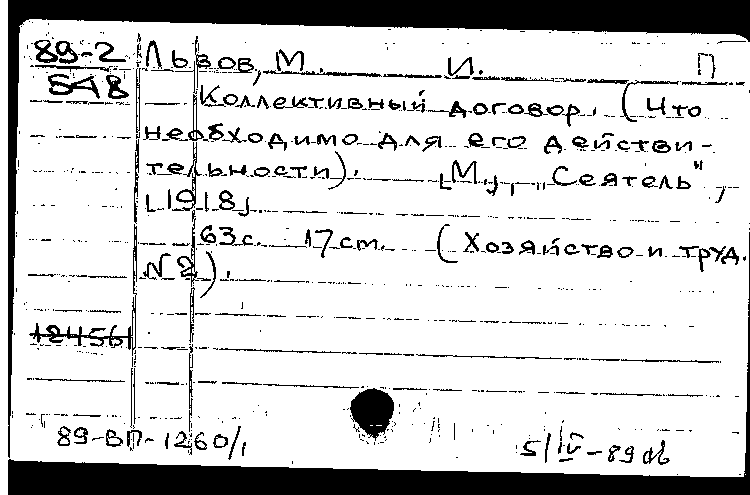 89-2 Львов, М. И. П
548
Коллективный договор. (Что
необходимо для его действи-
тельности). [М.], „Сеятель",
[1918].
63с. 17 см. (Хозяйство и труд.
№2).
124561
89-ВП-1260/1
5/IV-89